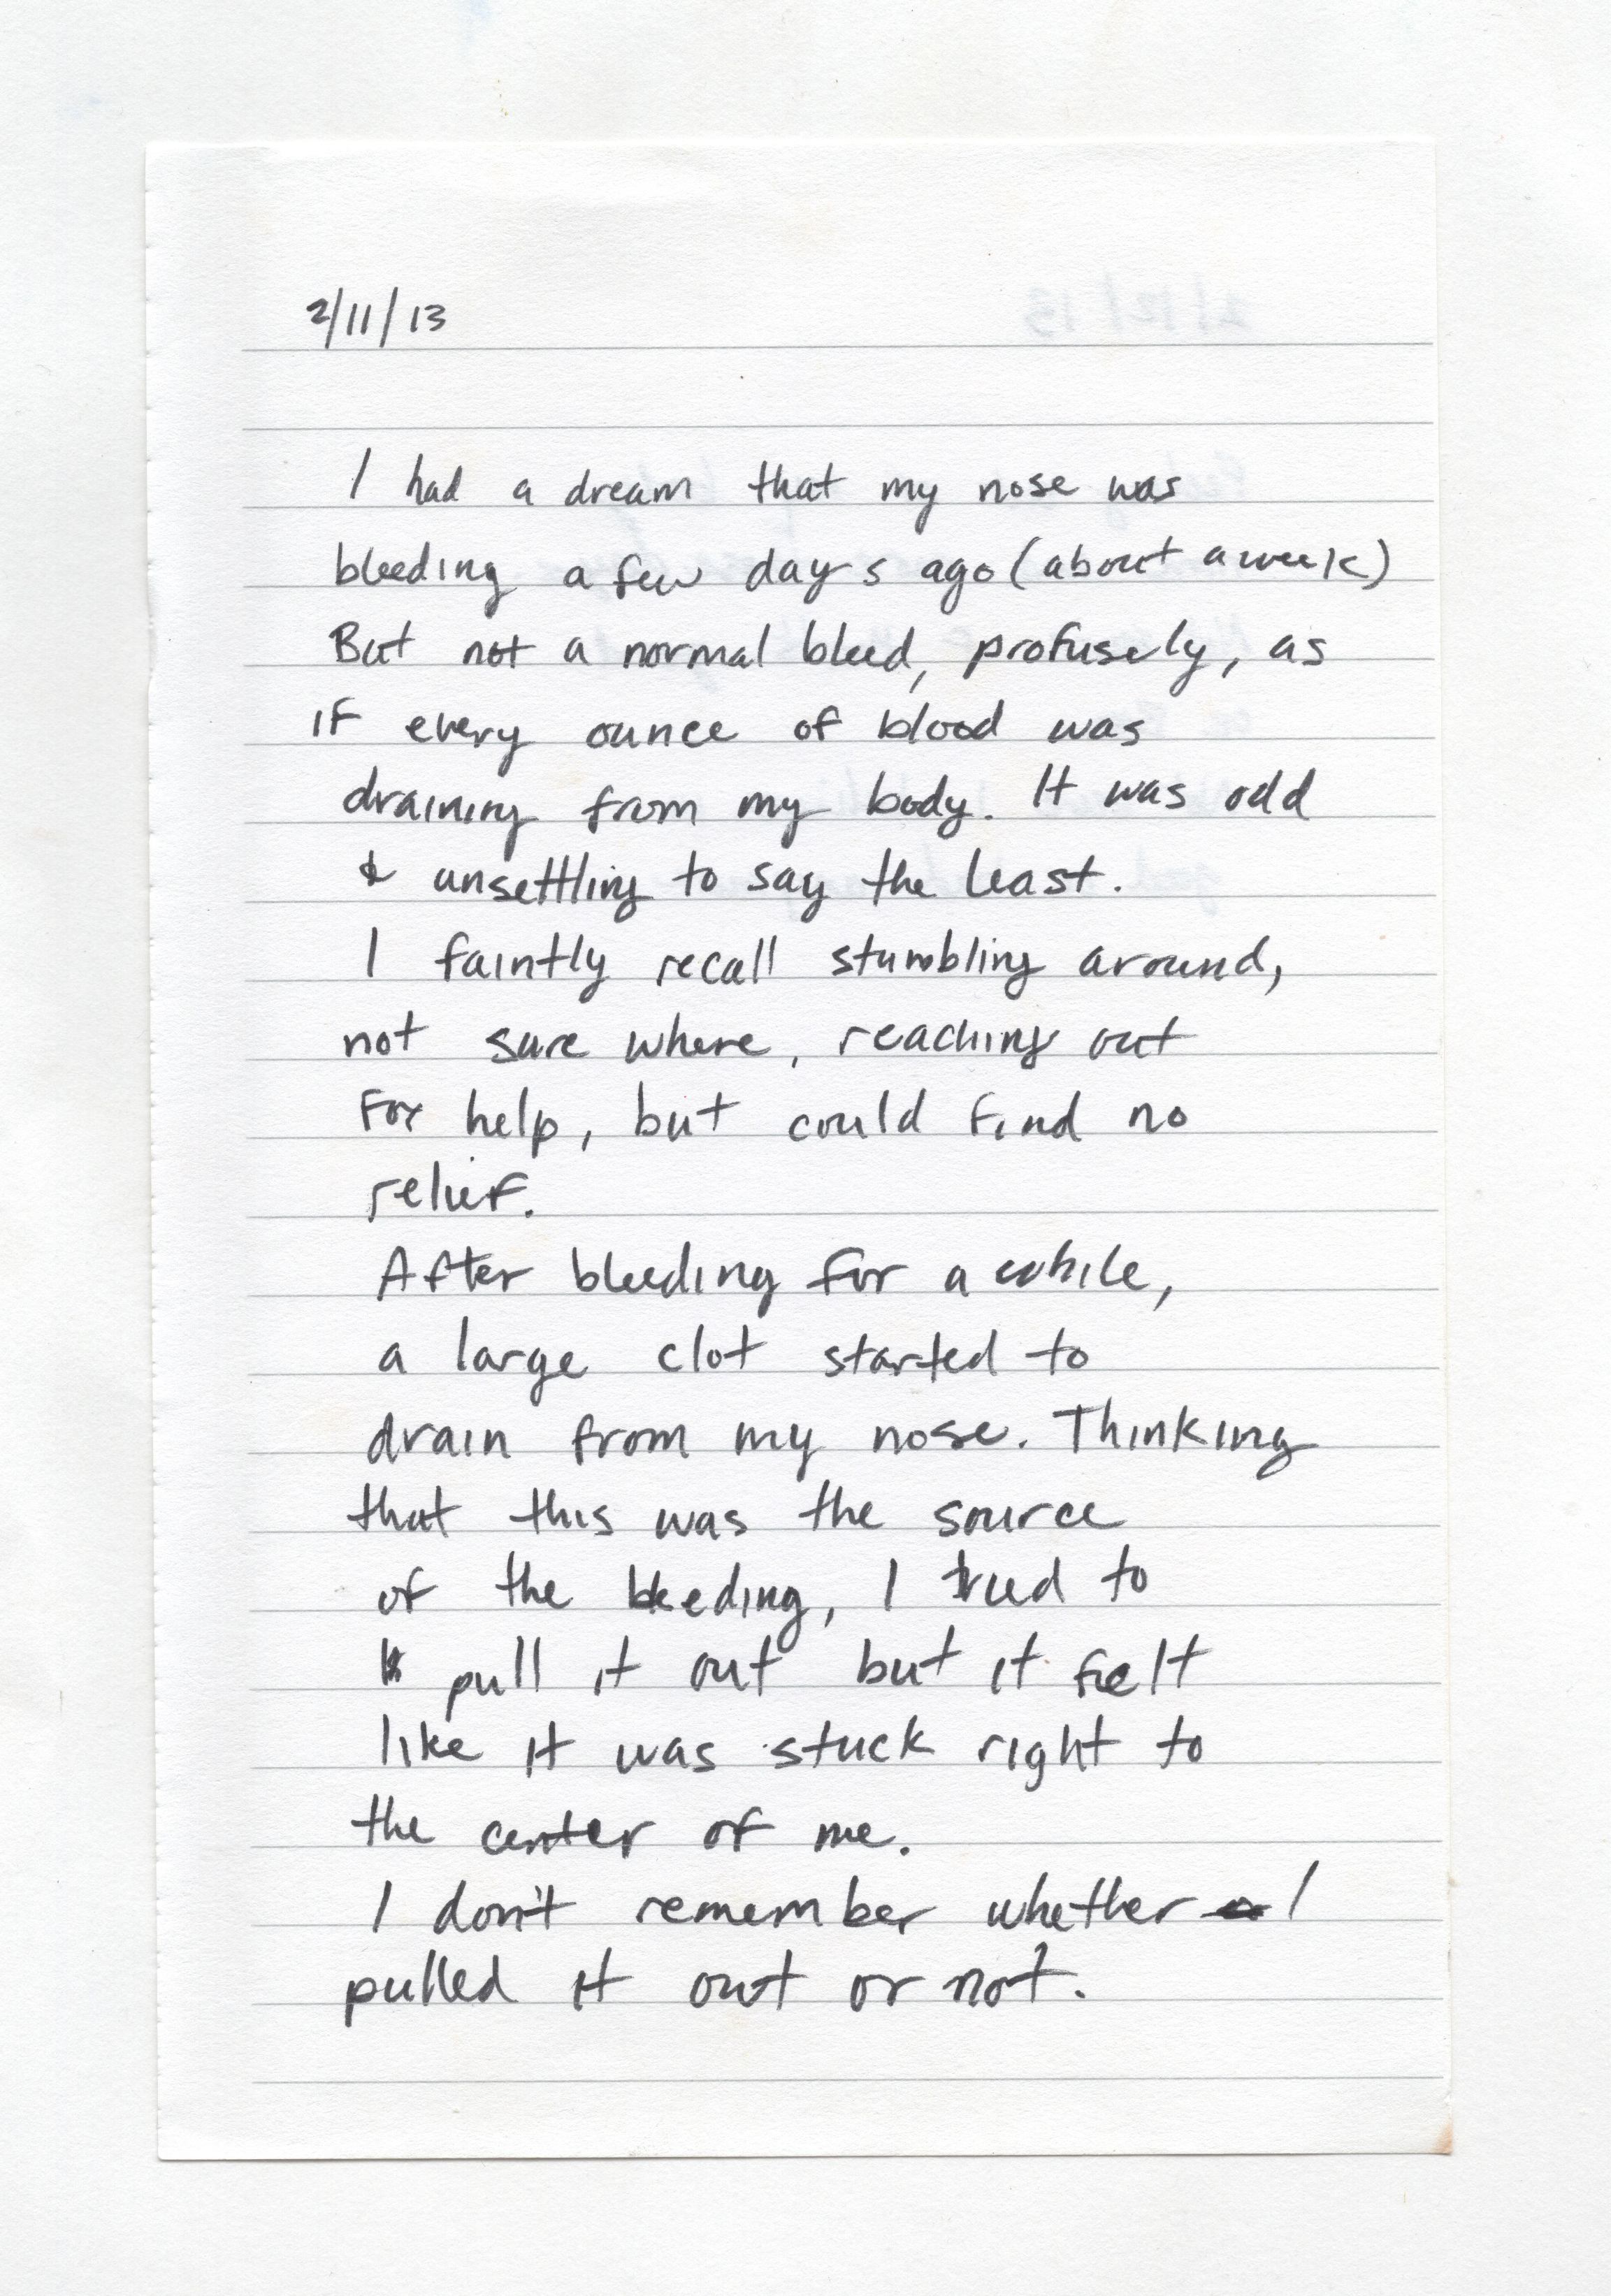 2/11/13
I had a dream that my nose was
bleeding a few days ago (about a week)
But not a normal bleed, profusely, as
if every ounce of blood was
draining from my body. It was odd
& unsettling to say the least.
I faintly recall stumbling around,
not sure where, reaching out
for help, but could find no
relief.
After bleeding for a while,
a large clot started to
drain from my nose. Thinking
that this was the source
of the bleeding, I tried to
pull it out but it felt
like it was stuck right to
the center of me.
I don't remember whether I
pulled it out or not.